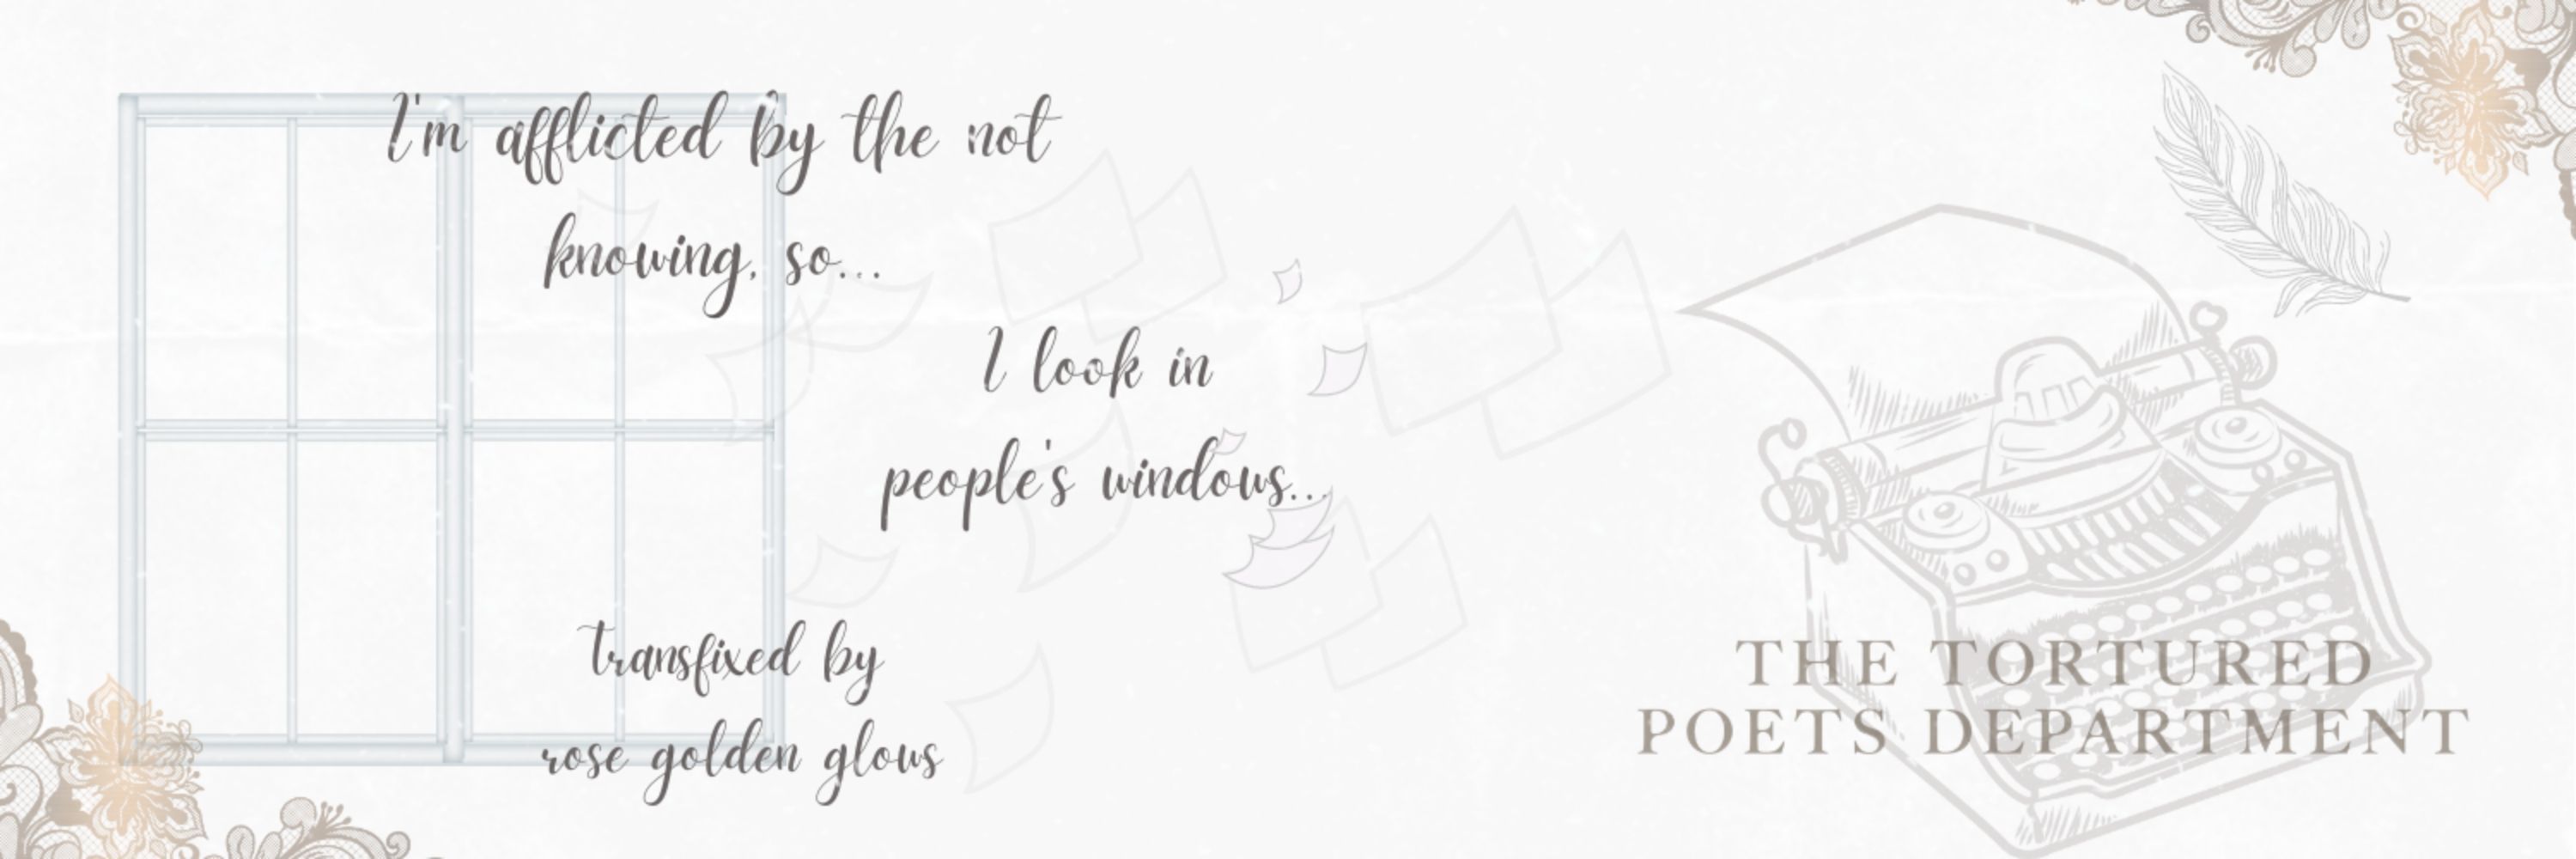 I'm afflicted by the not
knowing, so...
I look in
people's windows...
transfixed by
rose golden glows
THE TORTURED
POETS DEPARTMENT